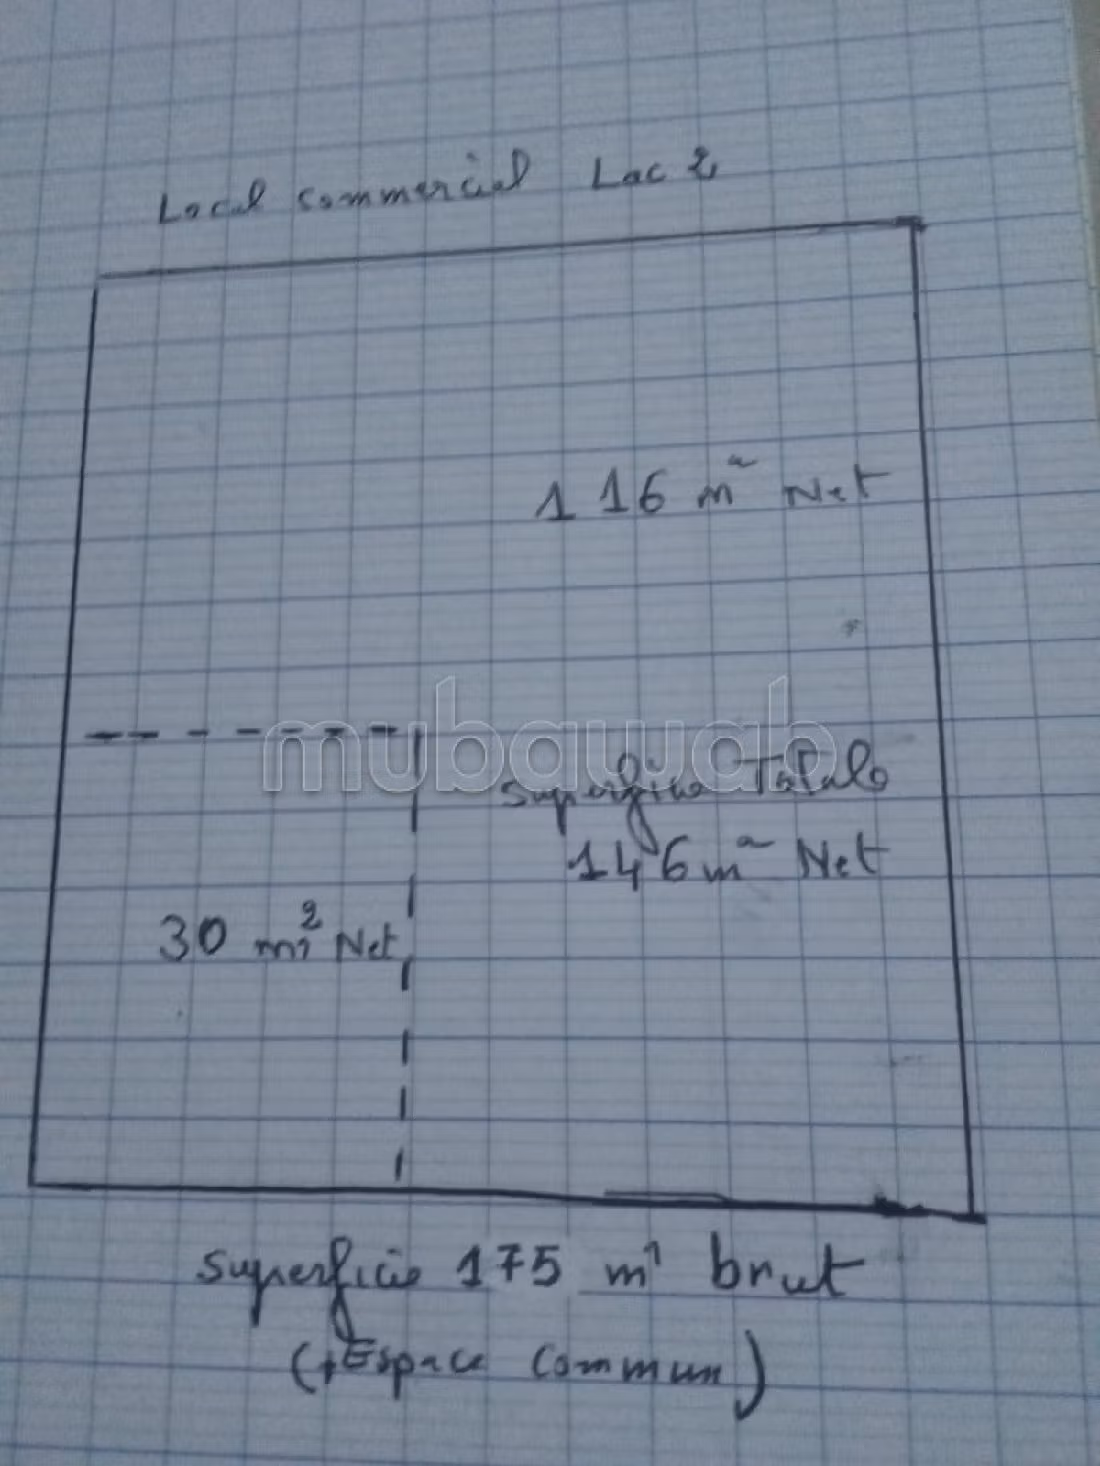 Local commercial Lac 2
116 m² Net
mubawab
Superficie Totale
146 m² Net
30 m² Net
Superficie 175 m² brut
(+Espace Commun)